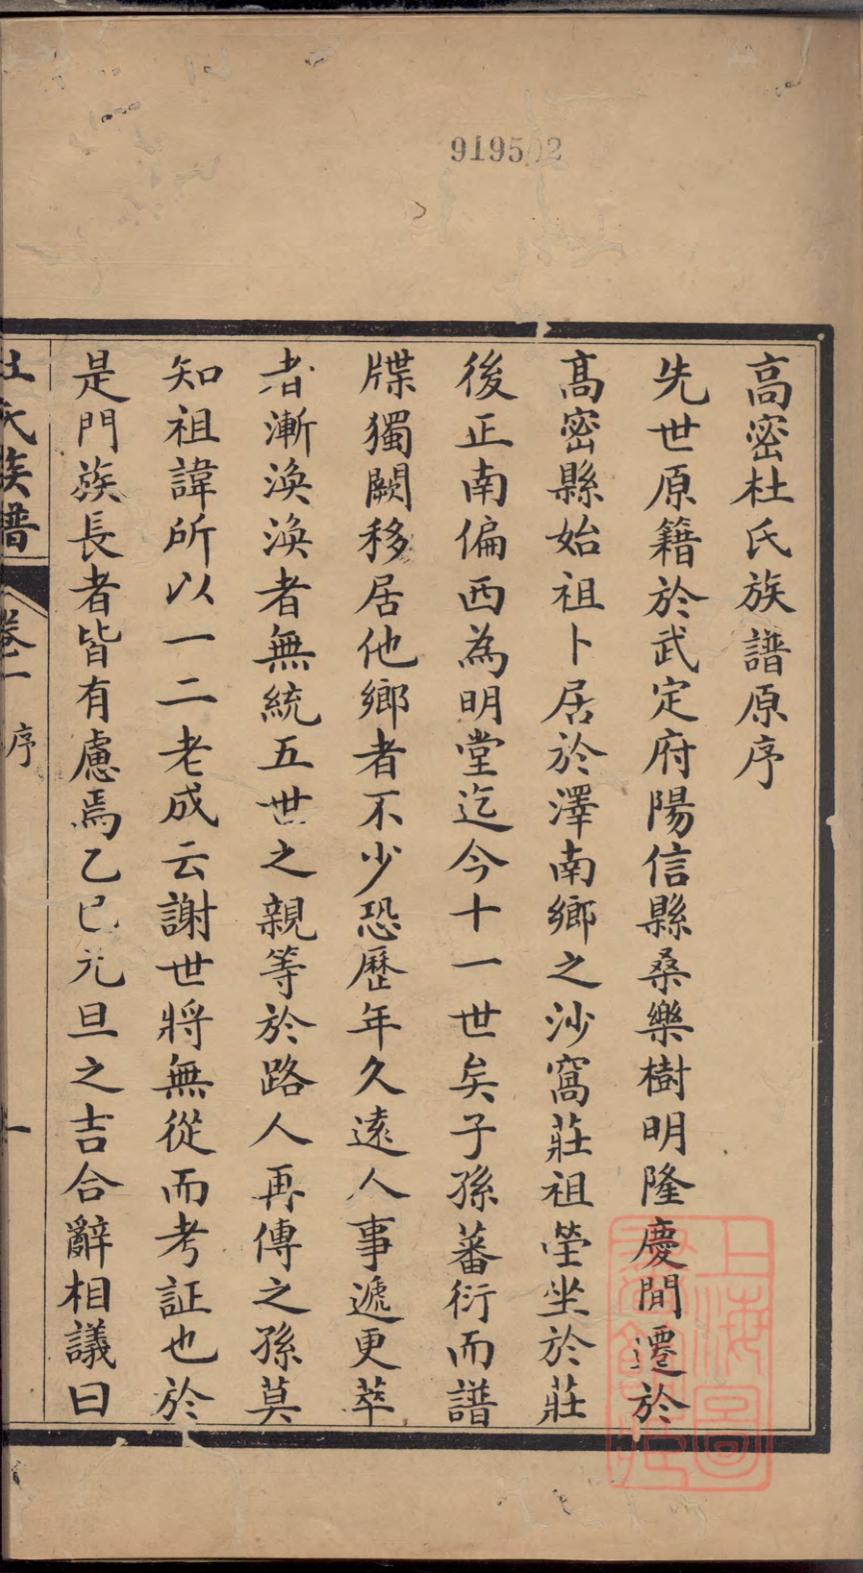 919502
高密杜氏族譜原序
先世原籍於武定府陽信縣桑樂樹明隆慶間遷於
髙密縣始祖卜居於澤南鄉之沙窩莊祖塋坐於莊
後正南偏西為明堂迄今十一世矣子孫蕃衍而譜
牒獨闕移居他鄉者不少恐歷年久遠人事遞更萃
者漸渙渙者無統五世之親等於路人再傳之孫莫
知祖諱所以一二老成云謝世將無從而考証也於
是門族長者皆有慮焉乙巳元旦之吉合辭相議曰
杜氏族譜 卷一 序 一
上海圖書館藏